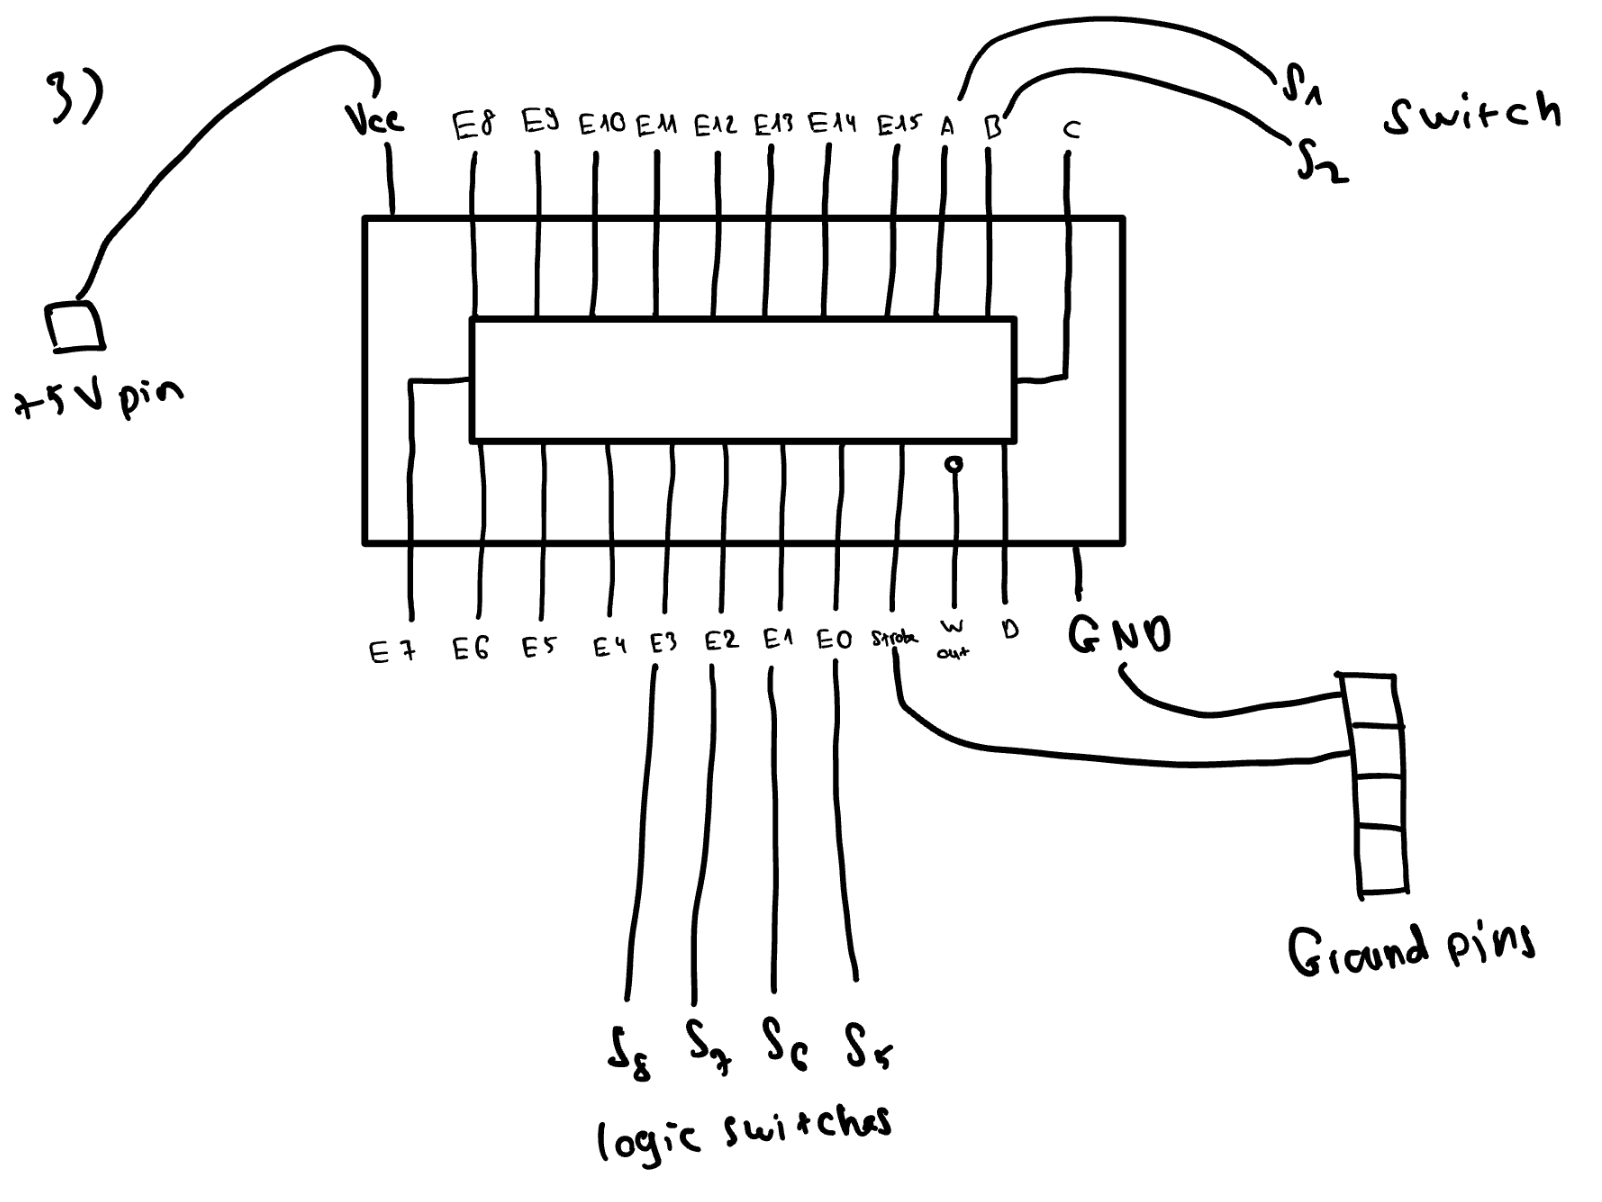 3)
Vcc E8 E9 E10 E11 E12 E13 E14 E15 A B C
S1
S2
Switch
+5V pin
E7 E6 E5 E4 E3 E2 E1 E0 Strobe W D GND
out
S8 S7 S6 S5
logic switches
Ground pins